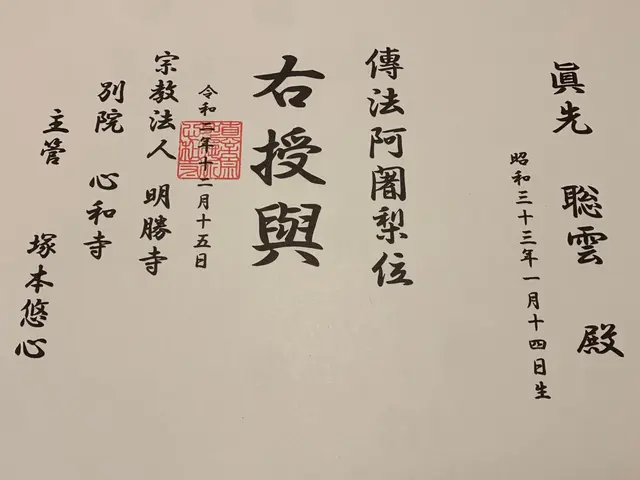 眞先 聡雲 殿
昭和三十三年一月十四日生
傳法阿闍梨位
右授與
令和二年十二月十五日
宗教法人 明勝寺
別院 心和寺
主管 塚本悠心